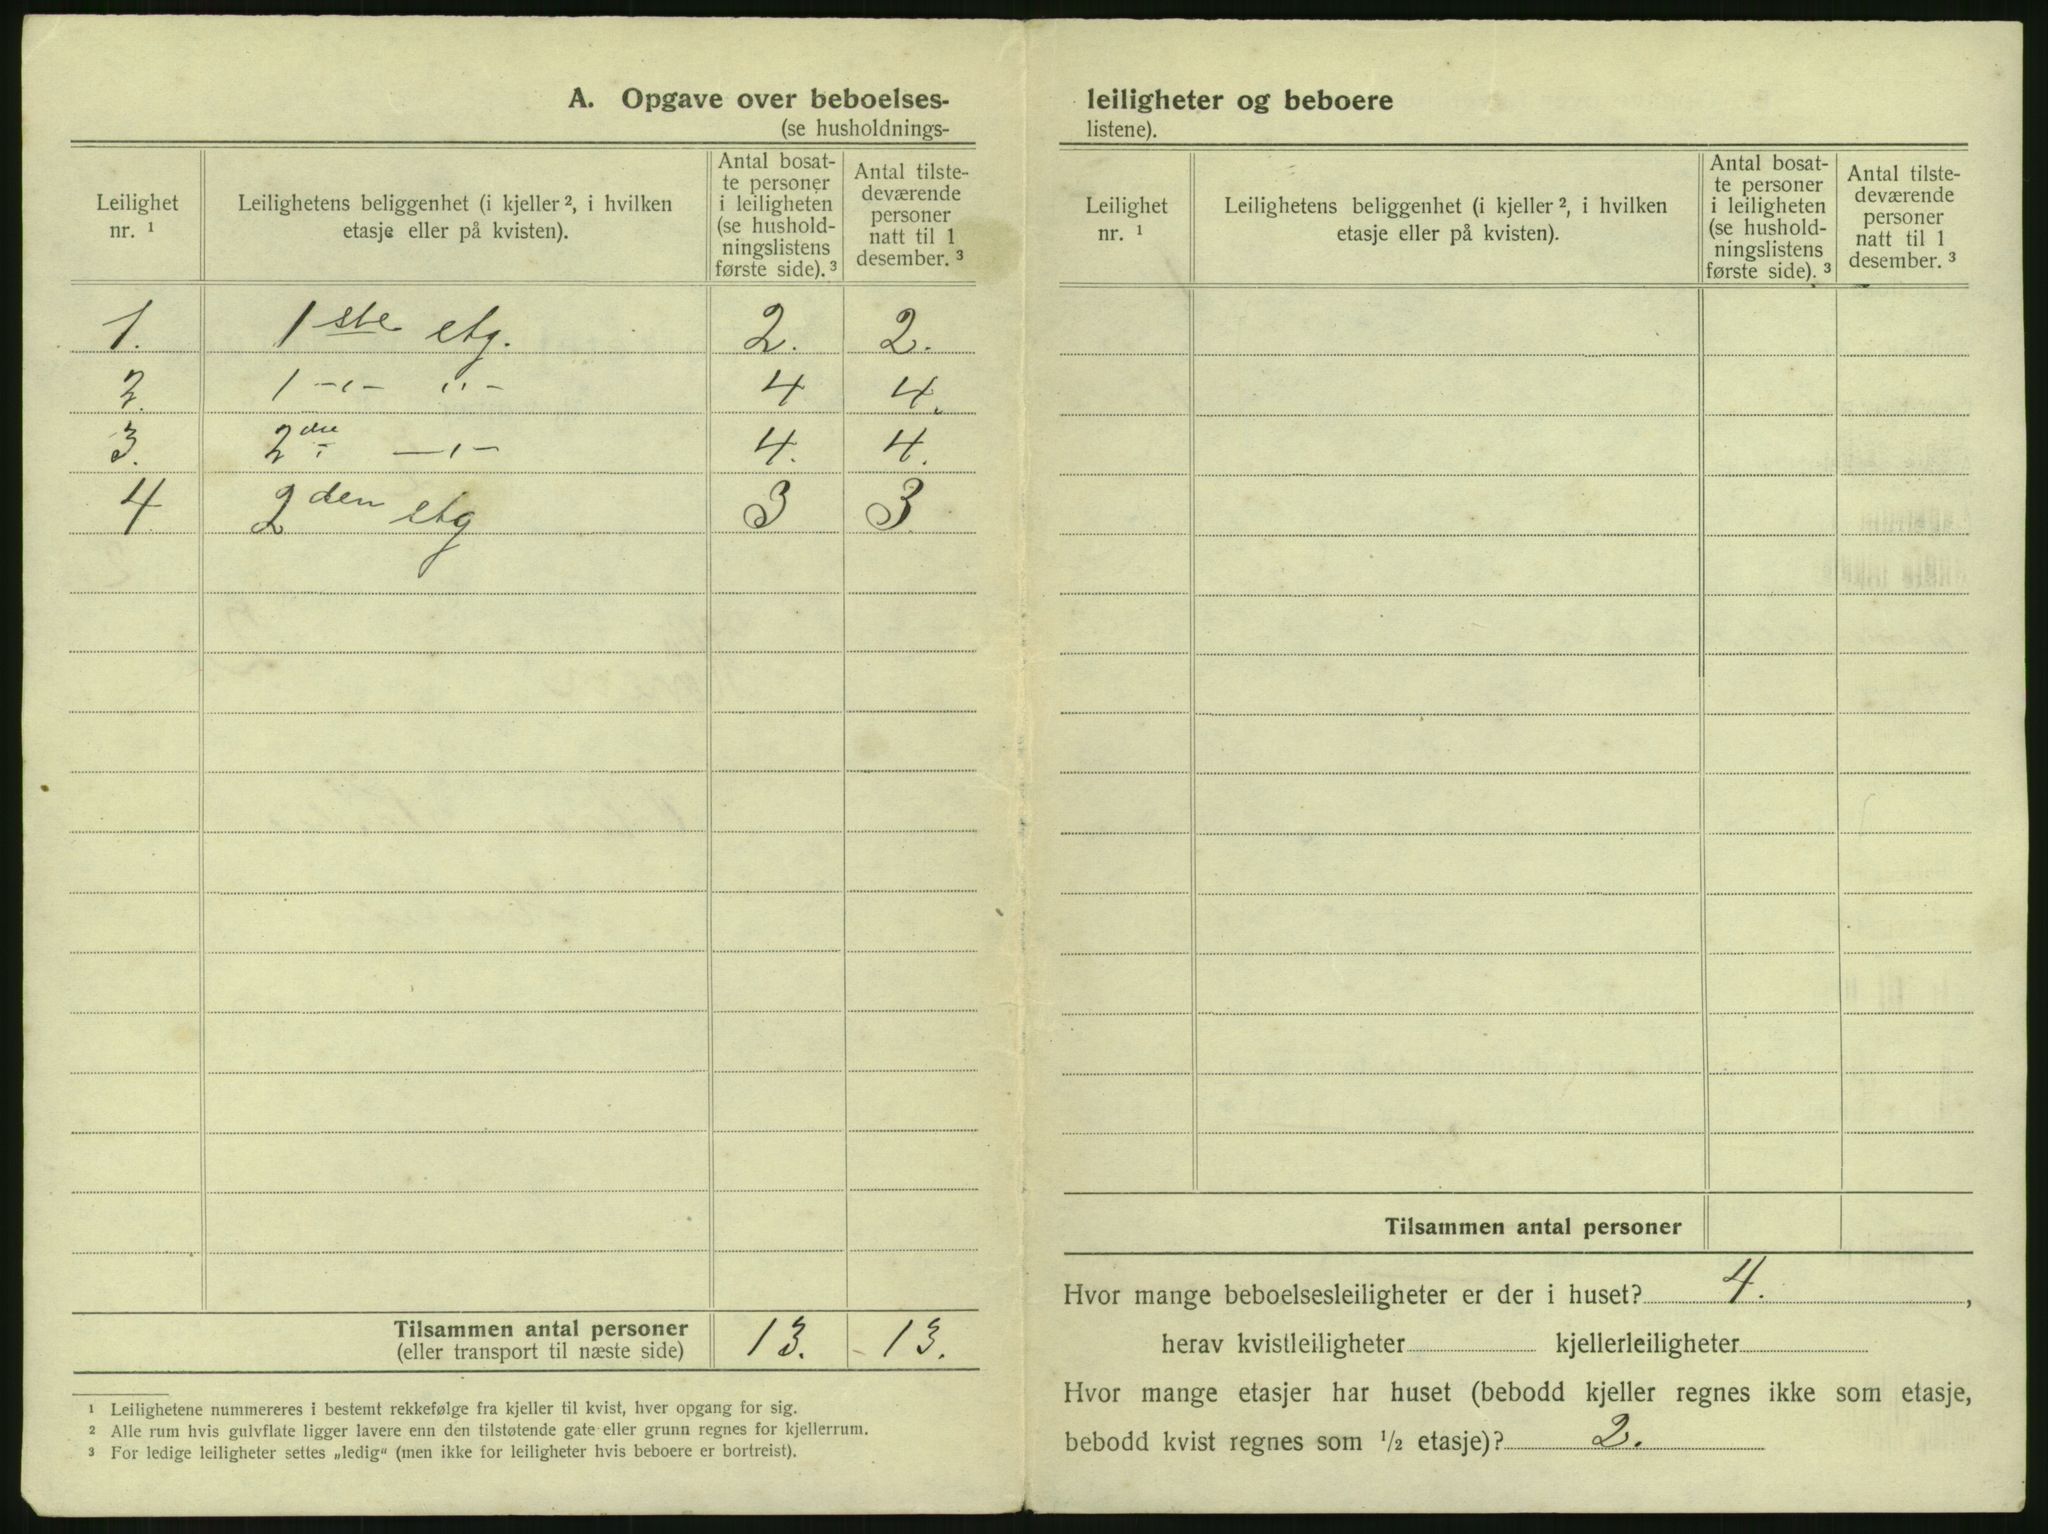 A. Opgave over beboelses-
(se husholdnings-
Leilighet
nr. ¹
Leilighetens beliggenhet (i kjeller ², i hvilken
etasje eller på kvisten).
Antal bosat-
te personer
i leiligheten
(se hushold-
ningslistens
første side). ³
Antal tilste-
deværende
personer
natt til 1
desember. ³
1. 1ste etg. 2. 2.
2. 1 -„- „- 4 4.
3. 2dre -„- 4. 4.
4. 2den etg 3 3.
Tilsammen antal personer 13. 13.
(eller transport til næste side)
¹ Leilighetene nummereres i bestemt rekkefølge fra kjeller til kvist, hver opgang for sig.
² Alle rum hvis gulvflate ligger lavere enn den tilstøtende gate eller grunn regnes for kjellerrum.
³ For ledige leiligheter settes „ledig“ (men ikke for leiligheter hvis beboere er bortreist).
leiligheter og beboere
listene).
Leilighet
nr. ¹
Leilighetens beliggenhet (i kjeller ², i hvilken
etasje eller på kvisten).
Antal bosat-
te personer
i leiligheten
(se hushold-
ningslistens
første side). ³
Antal tilste-
deværende
personer
natt til 1
desember. ³
Tilsammen antal personer
Hvor mange beboelsesleiligheter er der i huset? 4.,
herav kvistleiligheter kjellerleiligheter
Hvor mange etasjer har huset (bebodd kjeller regnes ikke som etasje,
bebodd kvist regnes som ½ etasje)? 2.